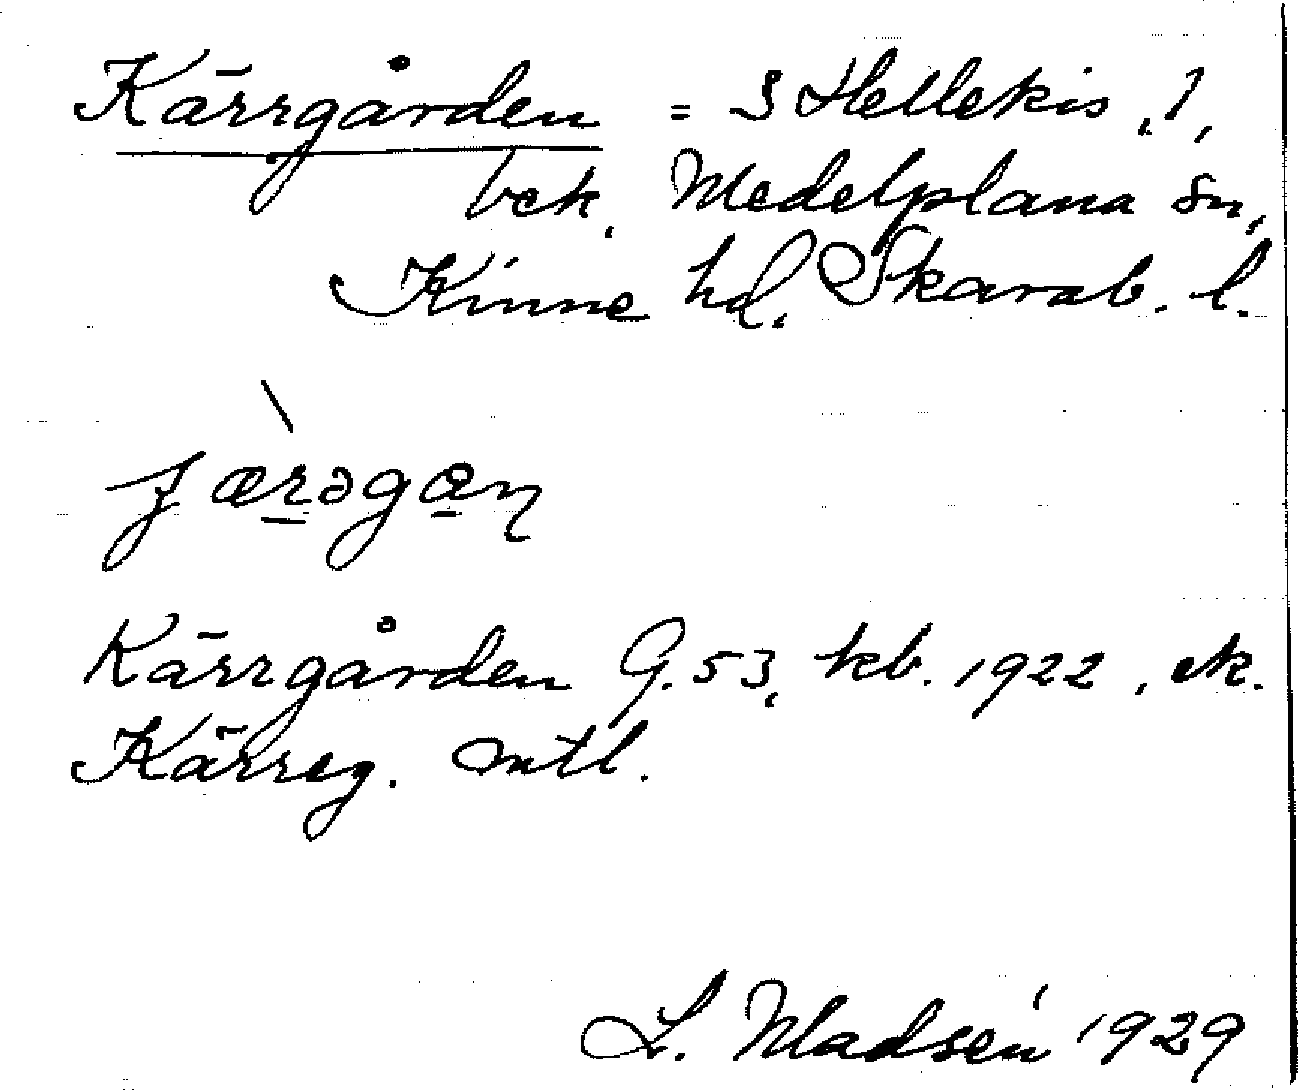 Kärrgården = S Hellekis, 1,
bek. Medelplana sn,
Kinne hd. Skarab. l.
Kärrgården G. 53, kb. 1922, ek.
Kärreg. mtl.
L. Madsén 1929